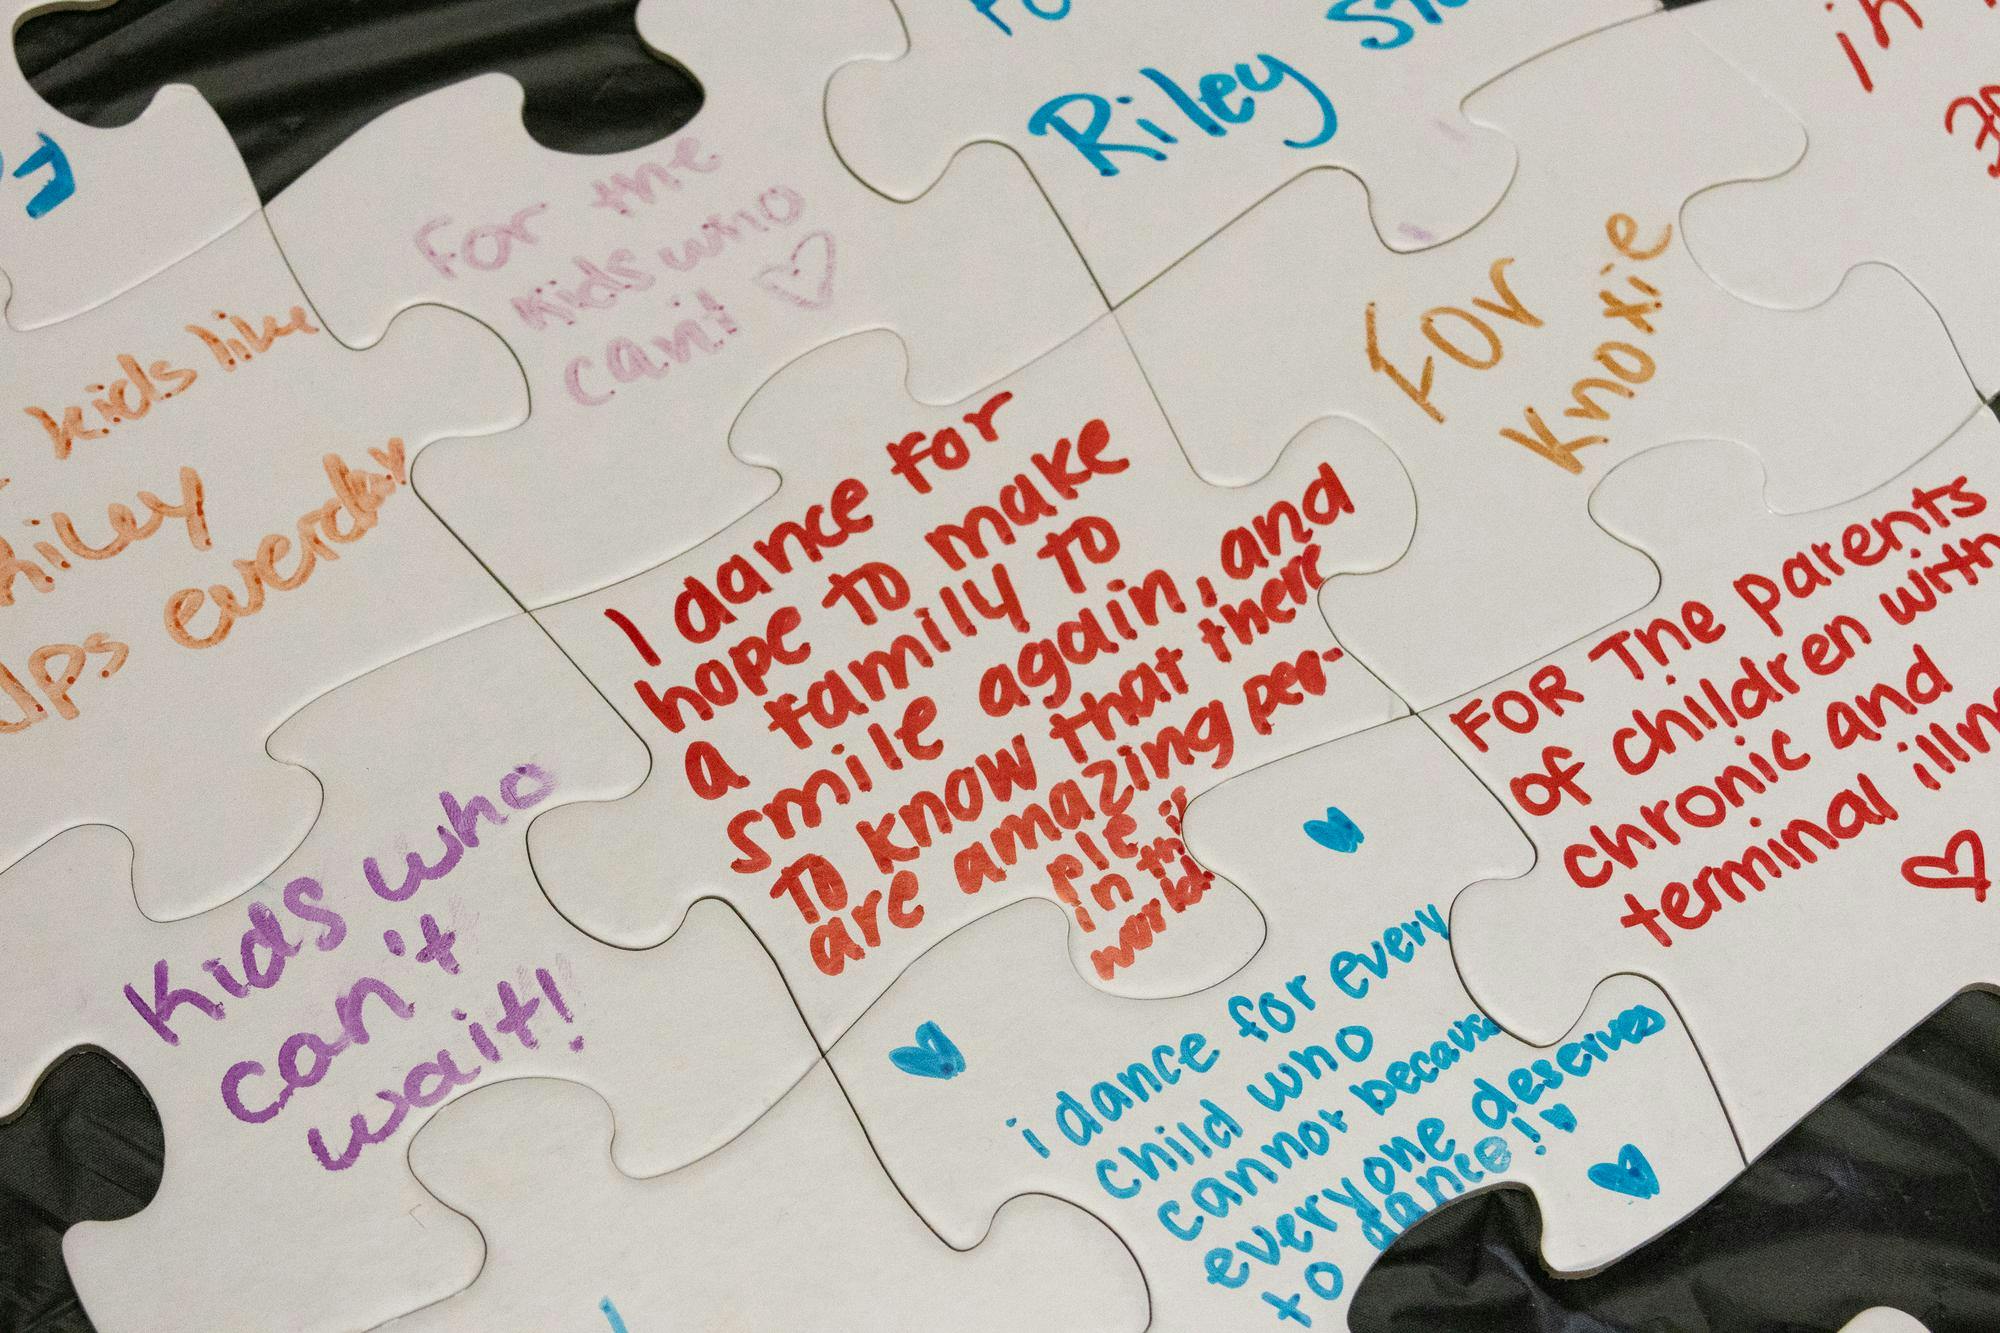 Riley
For the
kids who
can't ♡
For
Knoxie
kids like
everyday
I dance for
hope to make
a family to
smile again, and
to know that there
are amazing peo-
ple
in this
world.
FOR The parents
of children with
chronic and
terminal
♡
Kids who
can't
wait!
i dance for every
child who
cannot because
everyone deserves
to dance!